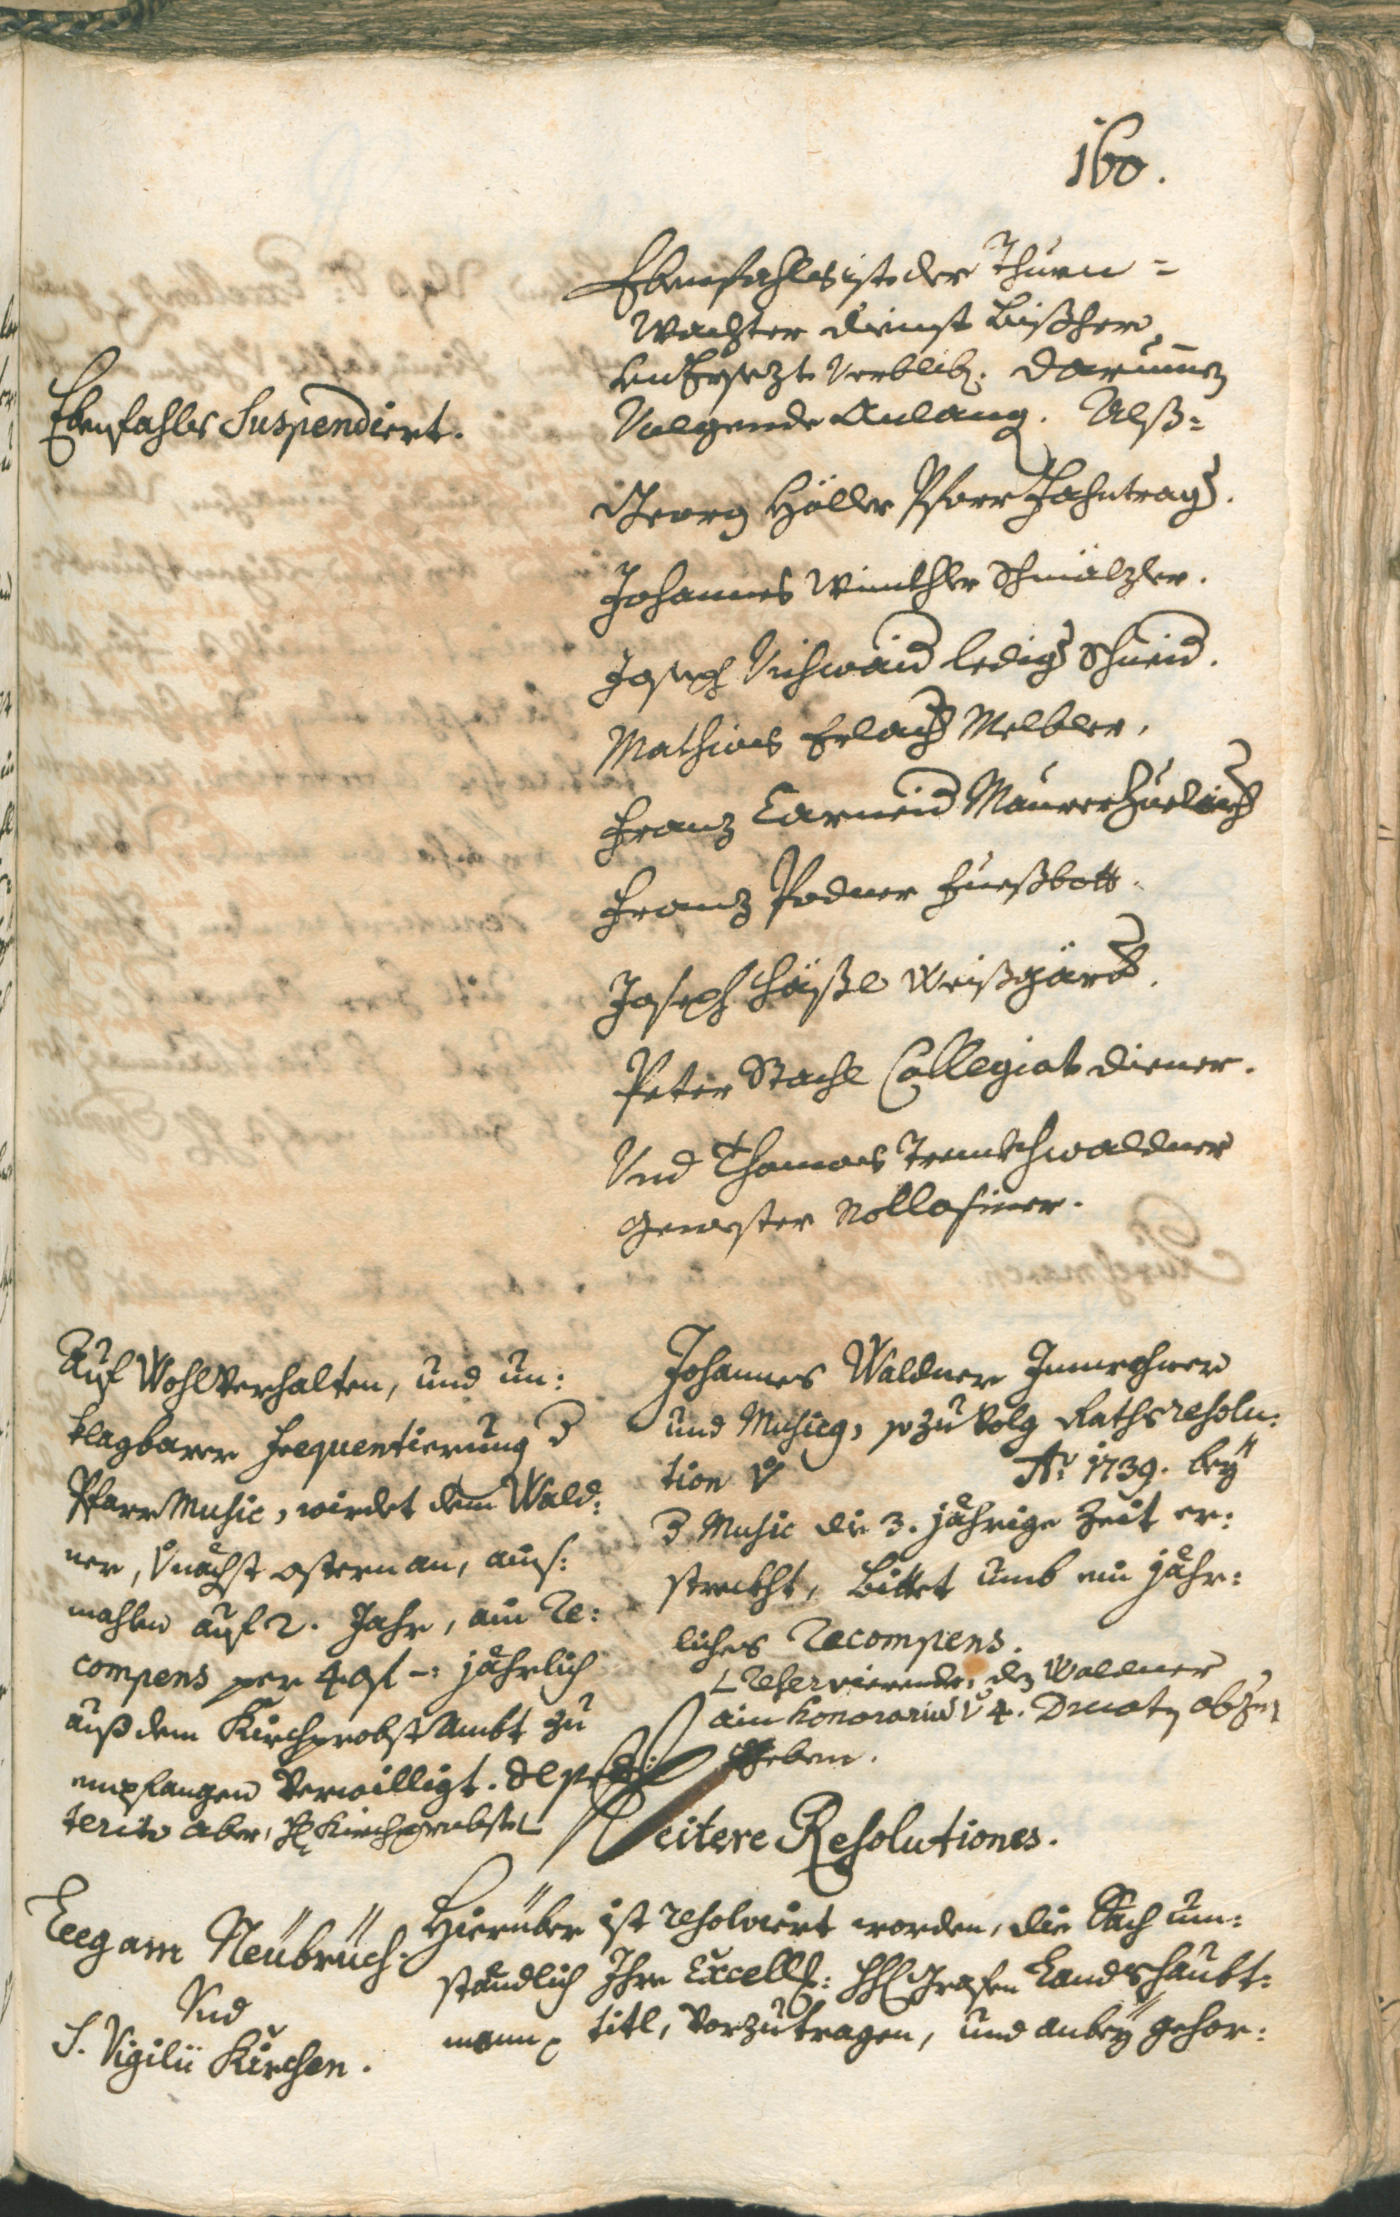 160.
Ebenfahls ist der Thurn=
Wachter dienst bißhero
unErsezt verblib. darumen
Volgende Anlang. Alß=
Ebenfahls Suspendiert.
Georg Höller Pfarr Fahntrag.
Johannes Winkhler Schmälzler.
Joseph Vichwaid ledig Schneid.
Mathias Erlach Melbler.
Franz Carneid Maurer
Franz Podner Fueßbott.
Joseph Häßl Weißgärb.
Peter Stahl Collegiat diener.
Und Thomas Trenkhwaldner
gewester
Auf Wohlverhalten, und un:
klagbarer frequentierung d
Pfarr Music, wirdet dem Wald:
ner, v nächst ostern an, ains:
mahlen auf 2. Jahr, ain Re:
compens per 40 f -: jährlich
auß dem Kirchprobst Ambt zu
empfangen Verwilligt.
aber, Kirchprobst
Johannes Waldner Innwohner
und Musicg, so zu Volg Rathsresolu:
tion v Ao 1739. bey
d Music die 3. jährige Zeit er:
strekht, bittet umb ein jähr:
liches Recompens.
Reservierende, dem Waldner
ain honorarium v 4. Ducaten abzu
geben.
Weitere Resolutiones.
Eeg am Neübrüch.
Und
S. Vigilii Kirchen.
Hierüber ist resolviert worden, die Sach um:
ständlich Ihro Excell: H Grafen Landshaubt:
mann titl, vorzutragen, und anbey gehor: